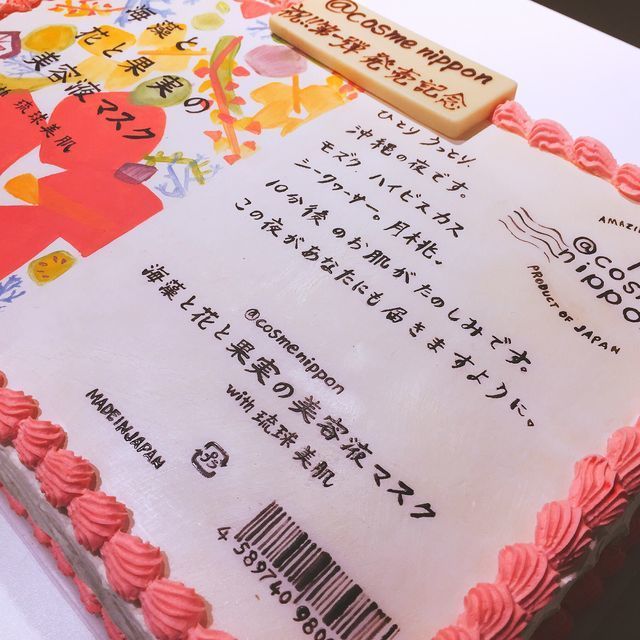 @cosme nippon
祝!!第一弾発売記念
海藻と
花と果実の
美容液マスク
琉球美肌
ひとり うっとり、
沖縄の夜です。
モズク、ハイビスカス
シークヮサー。月桃。
10分後のお肌がたのしみです。
この夜があなたにも届きますように。
@cosme nippon
PRODUCT OF JAPAN
@cosmenippon
海藻と花と果実の美容液マスク
with 琉球美肌
MADE IN JAPAN
プラ
4 589740 980